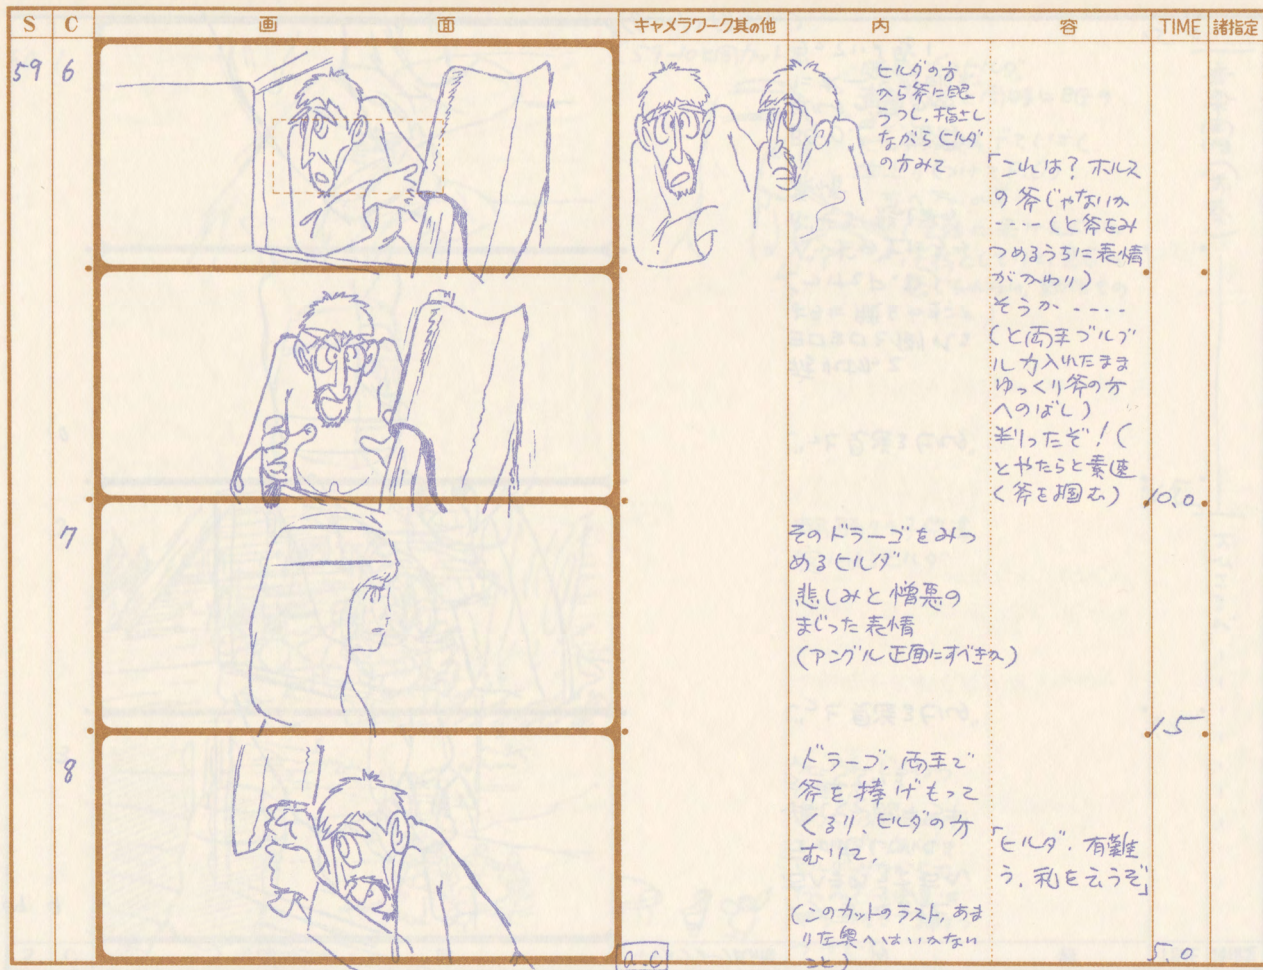 S C 画面 キャメラワーク其の他 内容 TIME 諸指定
59 6
ヒルダの方
から斧に眼
うつし、指さし
ながらヒルダ
の方みて
「これは？ホルス
の斧じゃないか
----(と斧をみ
つめるうちに表情
がかわり)
そうか ----
(と両手ブルブ
ル力入れたまま
ゆっくり斧の方
へのばし)
判ったぞ！(
とやたらと素速
く斧を掴む)
10.0
7
そのドラーゴをみつ
めるヒルダ
悲しみと憎悪の
まじった表情
(アングル正面にすべきか)
15
8
ドラーゴ、両手で
斧を捧げもって
くるり、ヒルダの方
むいて、
「ヒルダ、有難
う、礼を云うぞ」
(このカットのラスト、あま
り左奥へはいかない
こと)
a.c
5.0